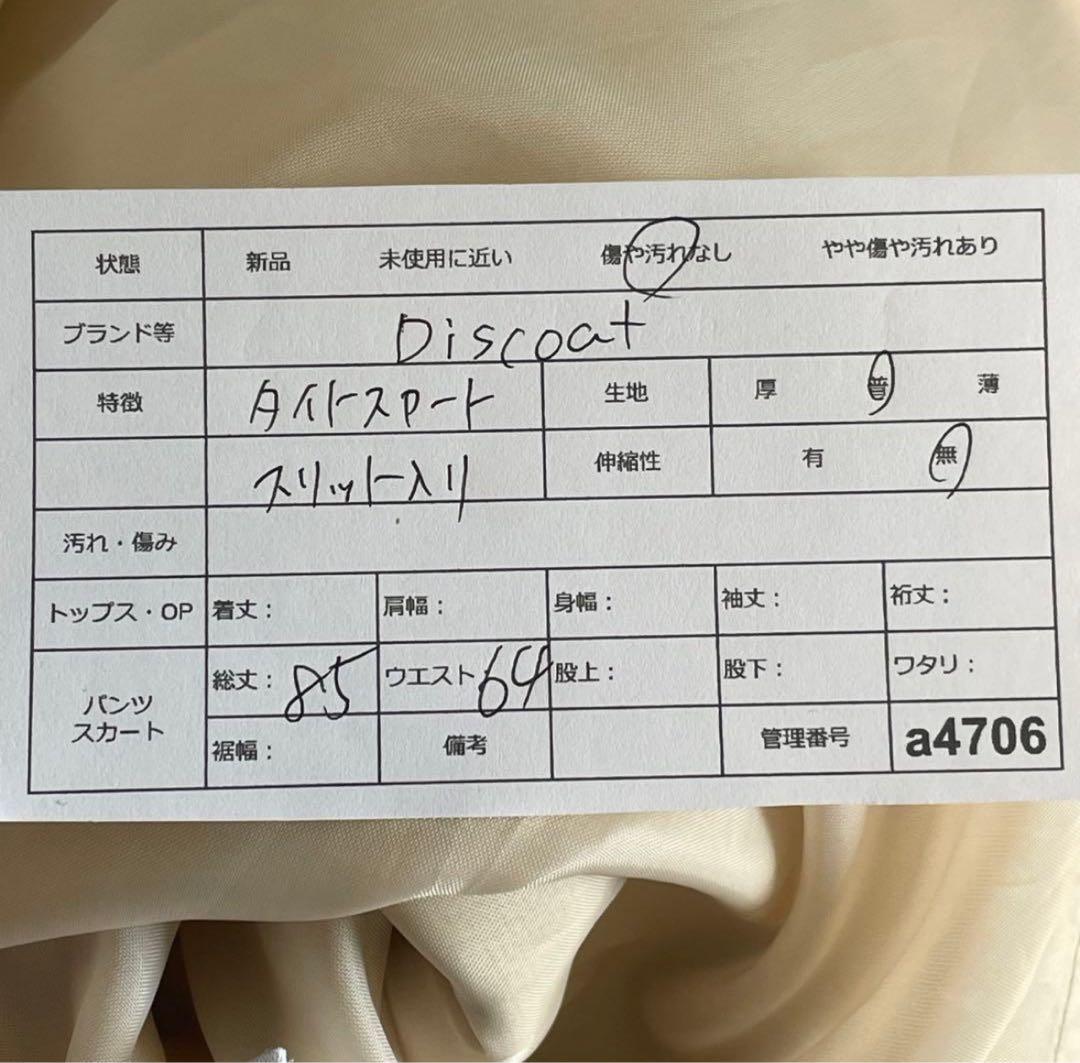 状態 新品 未使用に近い 傷や汚れなし やや傷や汚れあり
ブランド等 Discoat
特徴 タイトスカート 生地 厚 普 薄
スリット入り 伸縮性 有 無
汚れ・傷み
トップス・OP 着丈： 肩幅： 身幅： 袖丈： 裄丈：
パンツ スカート 総丈： 85 ウエスト 64 股上： 股下： ワタリ：
裾幅： 備考 管理番号 a4706